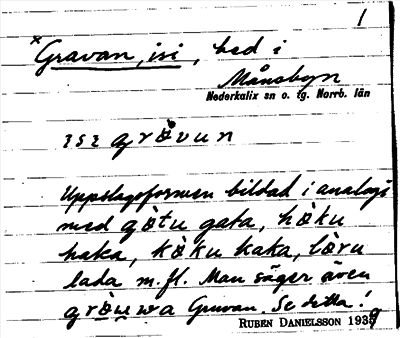 1
×Gravan, isi, bed i
Månsbyn
Nederkalix sn o. tg. Norrb. län
ısı grȯvun
Uppslagsformen bildad i analogi
med gò̱tu gata, hò̱ku
haka, kò̱ku kaka, lò̱ru
lada m.fl. Man säger även
grò̱u̱wa Gruvan. Se detta!
RUBEN DANIELSSON 1939